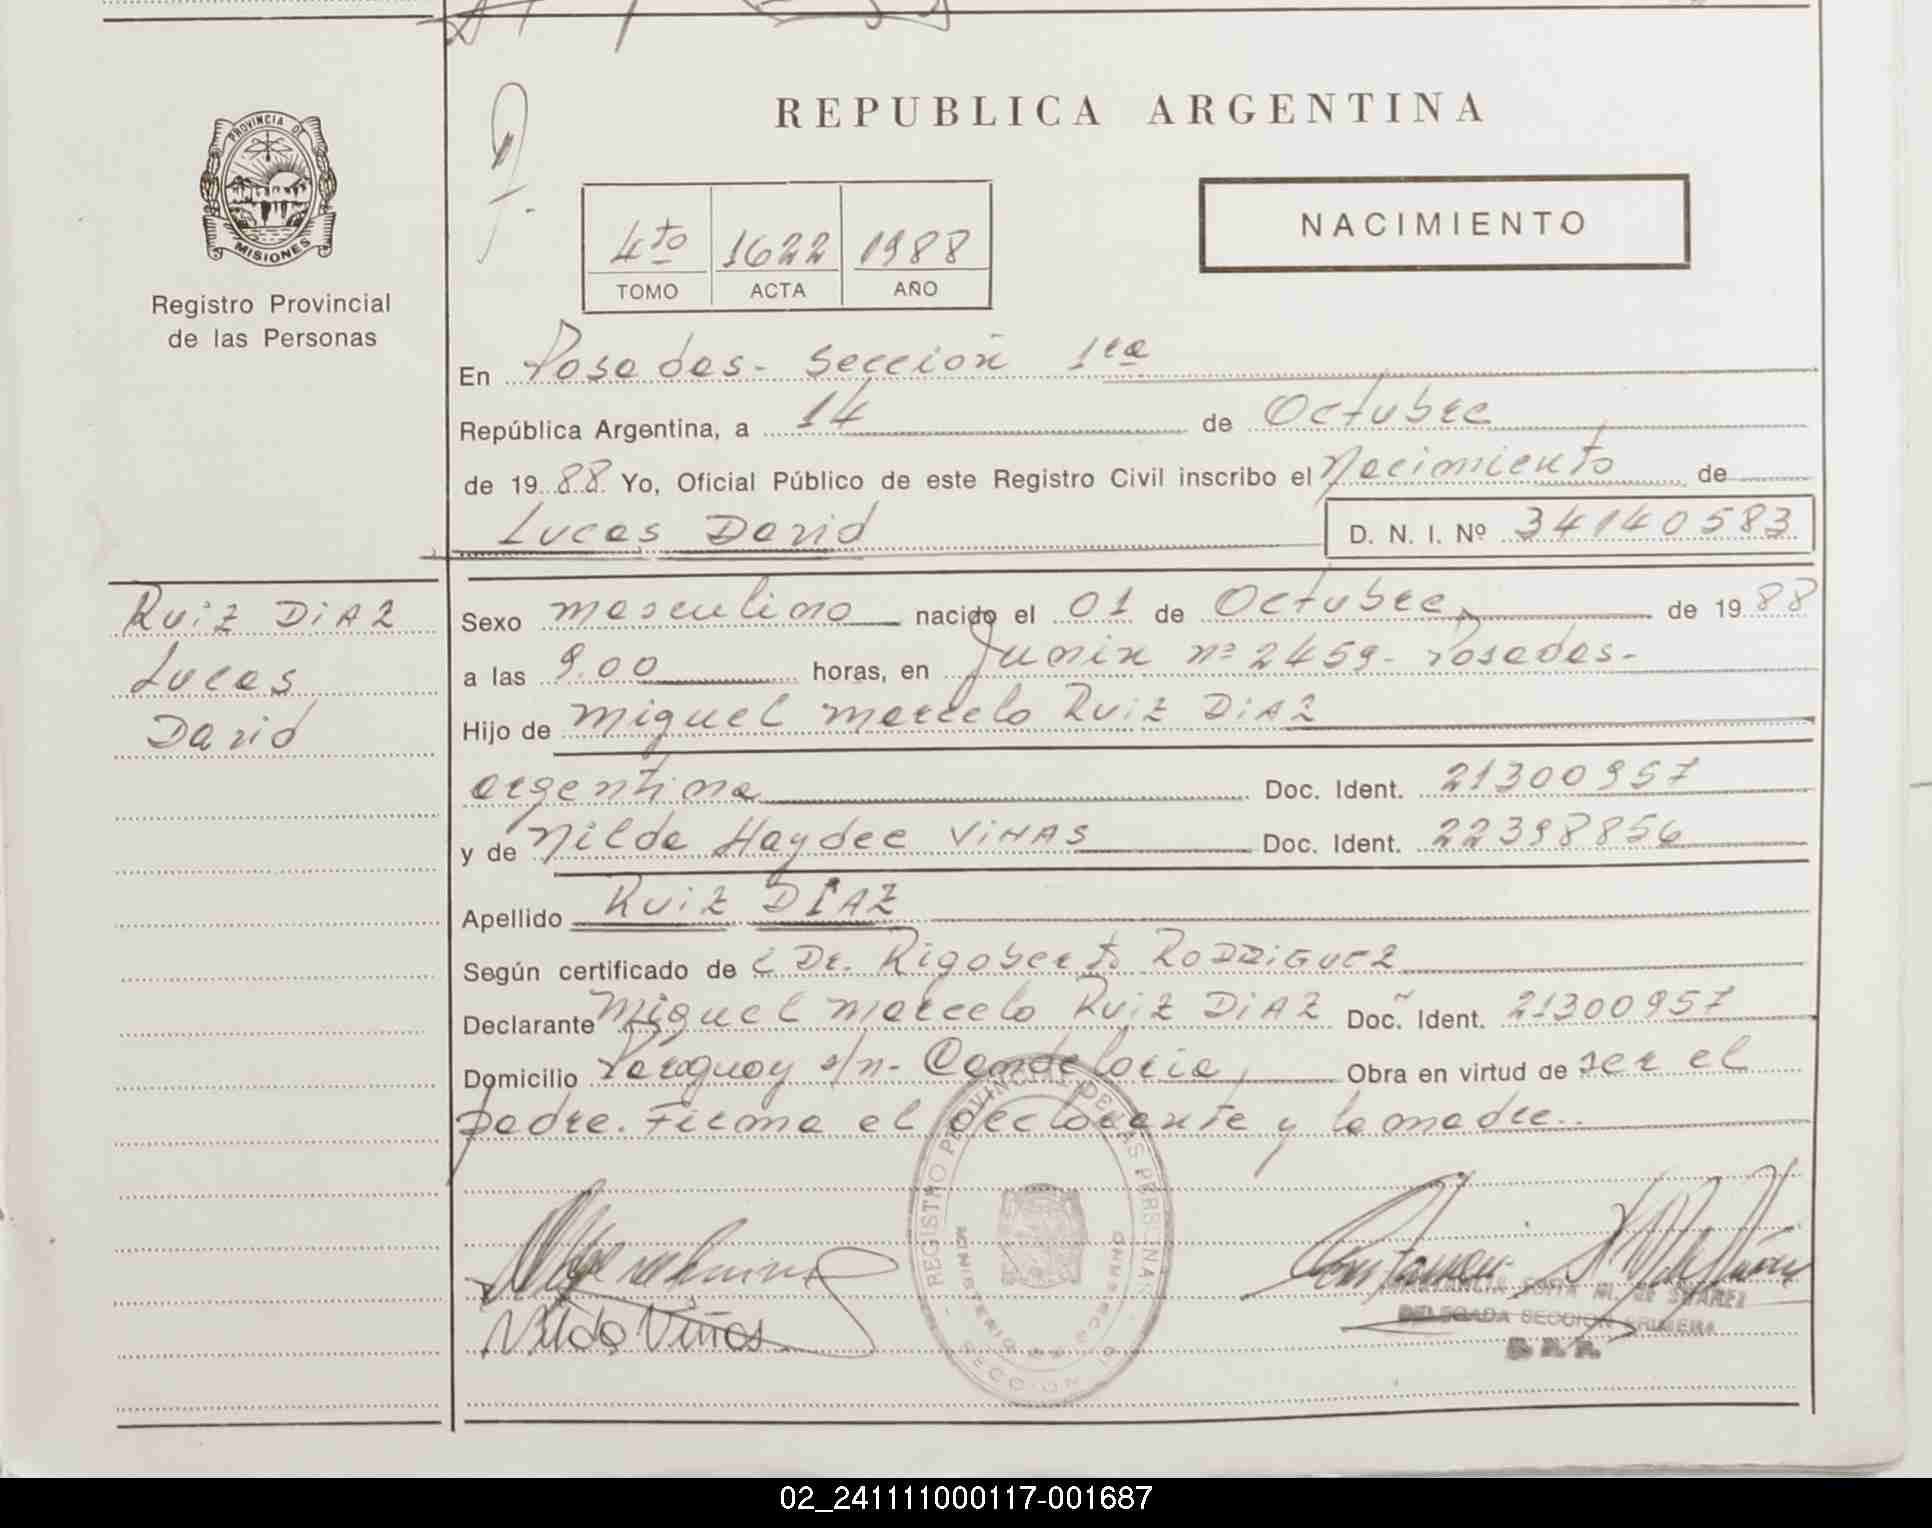 REPUBLICA ARGENTINA
PROVINCIA DE
MISIONES
Registro Provincial
de las Personas
4to 1622 1988
TOMO ACTA AÑO
NACIMIENTO
En Posadas - Sección 1ra
República Argentina, a 14 de Octubre
de 1988 Yo, Oficial Público de este Registro Civil inscribo el Nacimiento de
Lucas David D. N. I. Nº 34140583
Ruiz DiAZ
Lucas
David
Sexo masculino nacido el 01 de Octubre de 1988
a las 9.00 horas, en Junin nº 2459 - Posadas -
Hijo de Miguel Marcelo Ruiz DiAZ
argentina Doc. Ident. 21300957
y de Nilda Haydee ViÑAS Doc. Ident. 22398856
Apellido Ruiz DIAZ
Según certificado de Dr. Rigoberto RODRiGUEZ
Declarante Miguel Marcelo Ruiz DiAZ Doc. Ident. 21300957
Domicilio Paraguay s/n - Candelaria, Obra en virtud de ser el
padre. Firma el declarante y la madre.
REGISTRO PROVINCIAL DE LAS PERSONAS
MINISTERIO DE GOBIERNO
SECCION
Nilda Viñas
SOFIA M. DE SUAREZ
DELEGADA SECCION PRIMERA
02_241111000117-001687